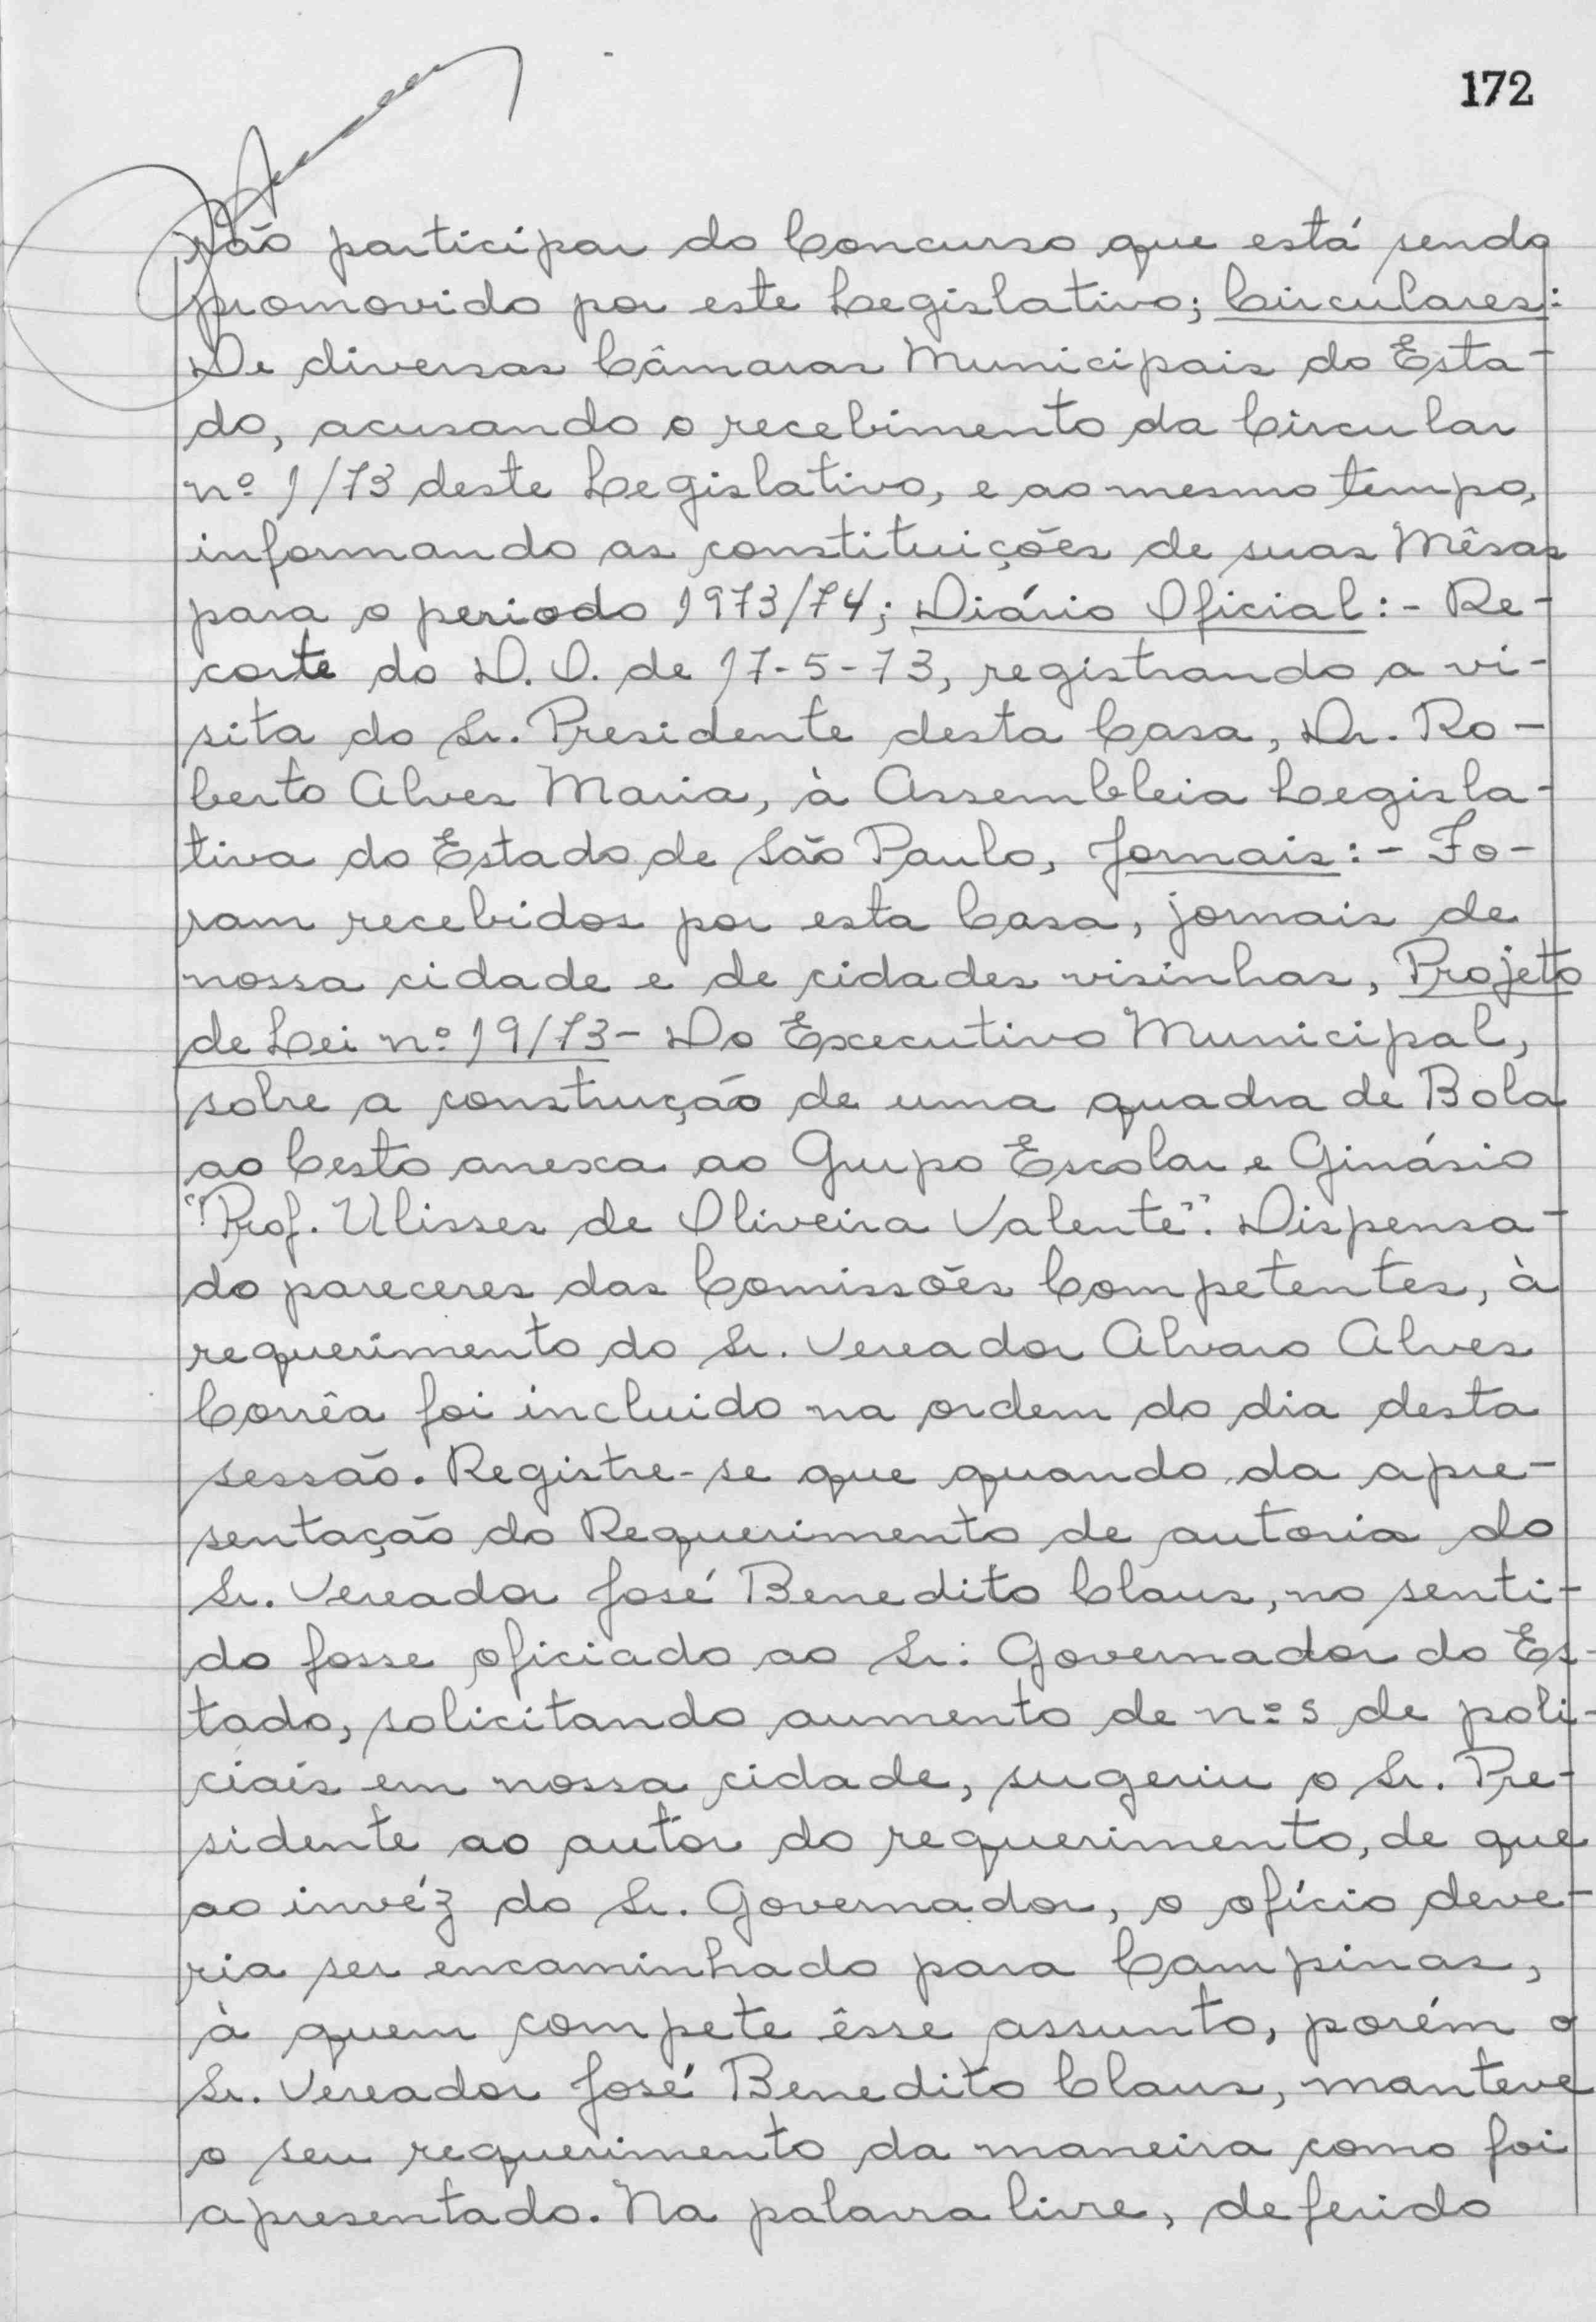 172
rão participar do Concurso que está sendo
promovido por este Legislativo; Circulares:
De diversas Câmaras Municipais do Esta-
do, acusando o recebimento da Circular
nº 1/73 deste Legislativo, e ao mesmo tempo,
informando as constituições de suas Mêsas
para o periodo 1973/74; Diário Oficial:- Re-
corte do D.O. de 17-5-73, registrando a vi-
sita do Sr. Presidente desta Casa, Dr. Ro-
berto Alves Maria, à Assembleia Legisla-
tiva do Estado de São Paulo, Jornais:- Fo-
ram recebidos por esta Casa, jornais de
nossa cidade e de cidades visinhas, Projeto
de Lei nº 19/73- Do Executivo Municipal,
sobre a construção de uma quadra de Bola
ao Cesto anexa ao Grupo Escolar e Ginásio
"Prof. Ulisses de Oliveira Valente". Dispensa-
do pareceres das Comissões Competentes, à
requerimento do Sr. Vereador Alvaro Alves
Corrêa foi incluido na ordem do dia desta
sessão. Registre-se que quando da apre-
sentação do Requerimento de autoria do
Sr. Vereador José Benedito Claus, no senti-
do fosse oficiado ao Sr. Governador do Es-
tado, solicitando aumento de nºs de poli-
ciais em nossa cidade, sugeriu o Sr. Pre-
sidente ao autor do requerimento, de que
ao invéz do Sr. Governador, o ofício deve-
ria ser encaminhado para Campinas,
à quem compete êsse assunto, porém o
Sr. Vereador José Benedito Claus, manteve
o seu requerimento da maneira como foi
apresentado. Na palavra livre, deferido